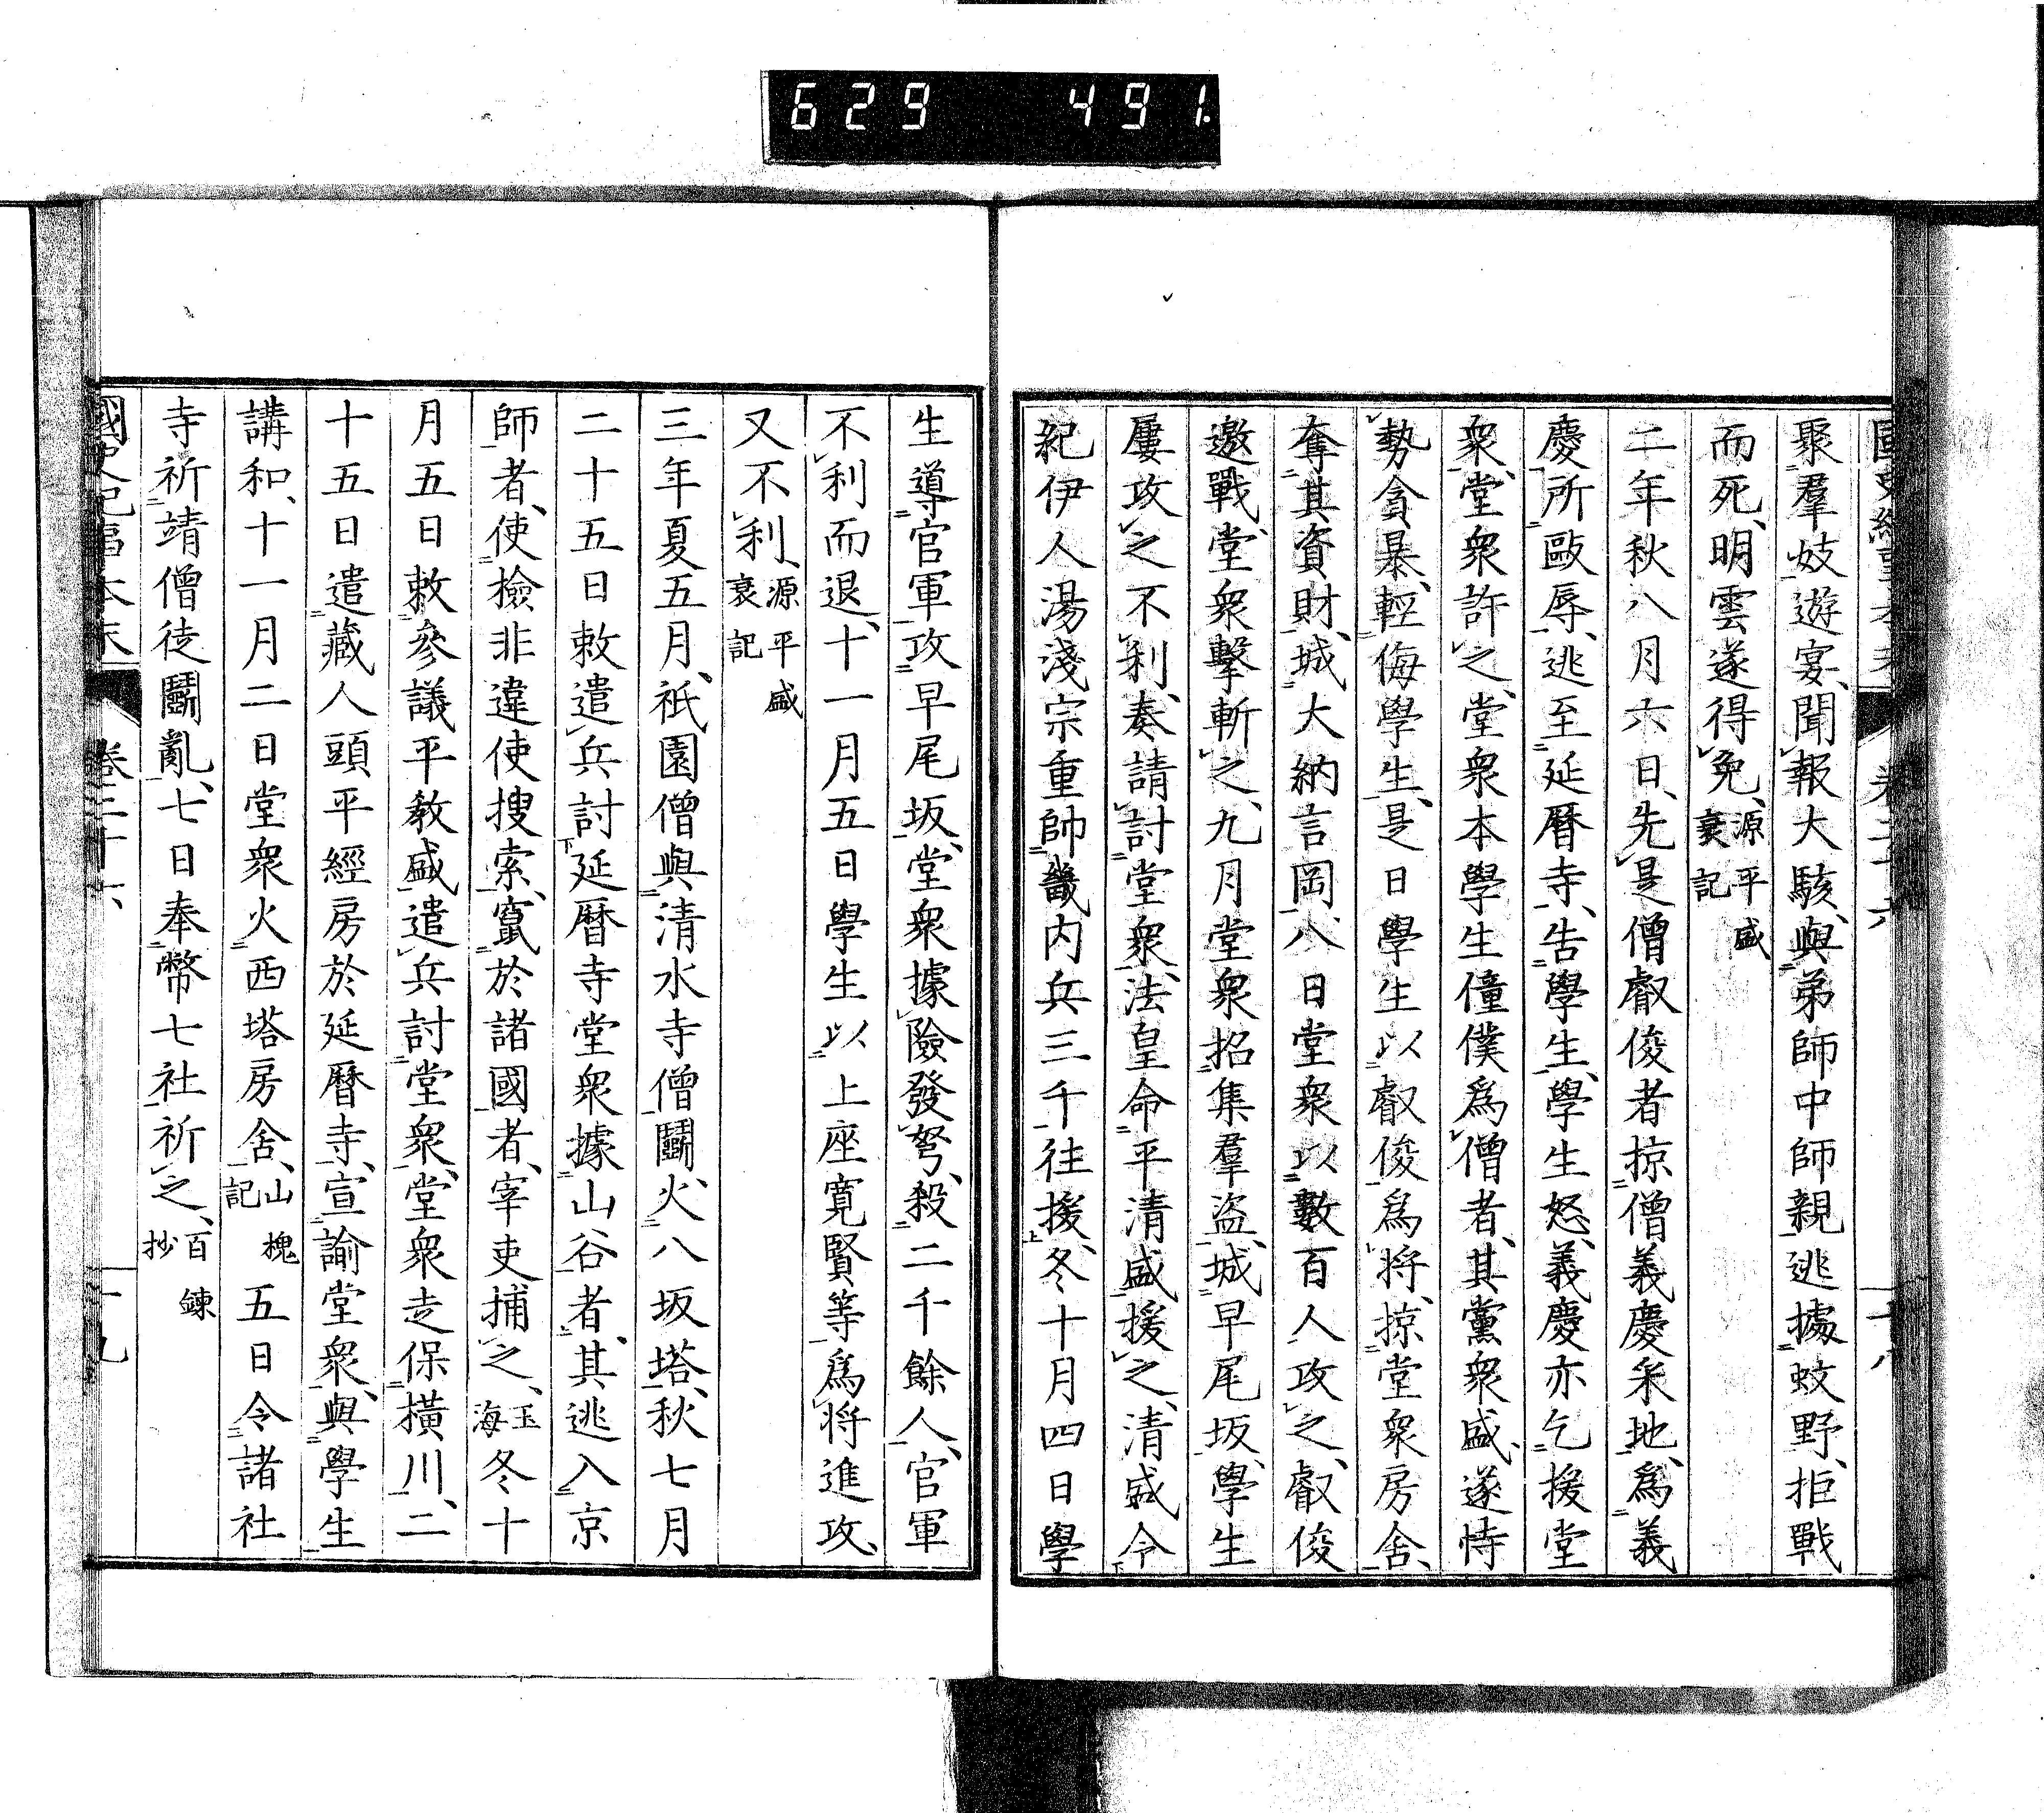 629 491.
聚羣妓遊宴、聞報大駭、與弟師中師親逃據蚊野、拒戰
而死、明雲遂得免、源平盛衰記
二年秋八月六日、先是僧叡俊者掠僧義慶釆地、爲義
慶所毆辱、逃至延曆寺、告學生、學生怒、義慶亦乞援堂
衆、堂衆許之、堂衆本學生僮僕爲僧者、其黨衆盛、遂恃
勢貪暴、輕侮學生、是日學生以叡俊爲將、掠堂衆房舍、
奪其資財、城大納言岡、八日堂衆以數百人攻之、叡俊
邀戰、堂衆擊斬之、九月堂衆招集羣盜、城早尾坂、學生
屢攻之不利、奏請討堂衆、法皇命平清盛援之、清盛令
紀伊人湯淺宗重帥畿內兵三千往援、冬十月四日學
生導官軍攻早尾坂、堂衆據險發弩、殺二千餘人、官軍
不利而退、十一月五日學生以上座寬賢等爲將進攻、
又不利、源平盛衰記
三年夏五月、祇園僧與清水寺僧鬭、火八坂塔、秋七月
二十五日敕遣兵討延曆寺堂衆據山谷者、其逃入京
師者、使檢非違使搜索、竄於諸國者、宰吏捕之、玉海冬十
月五日敕參議平敎盛遣兵討堂衆、堂衆走保橫川、二
十五日遣藏人頭平經房於延曆寺、宣諭堂衆、與學生
講和、十一月二日堂衆火西塔房舍、山槐記五日令諸社
寺祈靖僧徒鬭亂、七日奉幣七社祈之、百鍊抄
國史紀事本末 卷二十六 十九